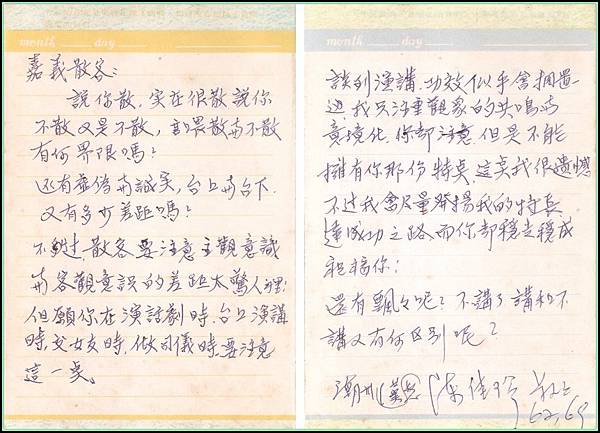 month day
嘉義散客:
說你散,实在很散說你
不散又是不散,散與不散
有何界限嗎?
还有虛偽與誠实,台上與台下
又有多少差距嗎?
不过,散客要注意主觀意識
與客觀意識的差距太驚人
但願你在演話劇時,台上演講
時,交女友時,做司儀時,要注意
這一奌。
month day
談到演講,功效似乎會擱置一
边,我只注重觀眾的共鳴與
意境化,你都注意,但是不能
擁有你那份特奌,這奌我很遺憾
不过我會尽量發揚我的特長
達成功之路,而你都穩走穩成
祝福你!
還有飄々呢?不講了講和不
講又有何区别呢?
潮州
62,69